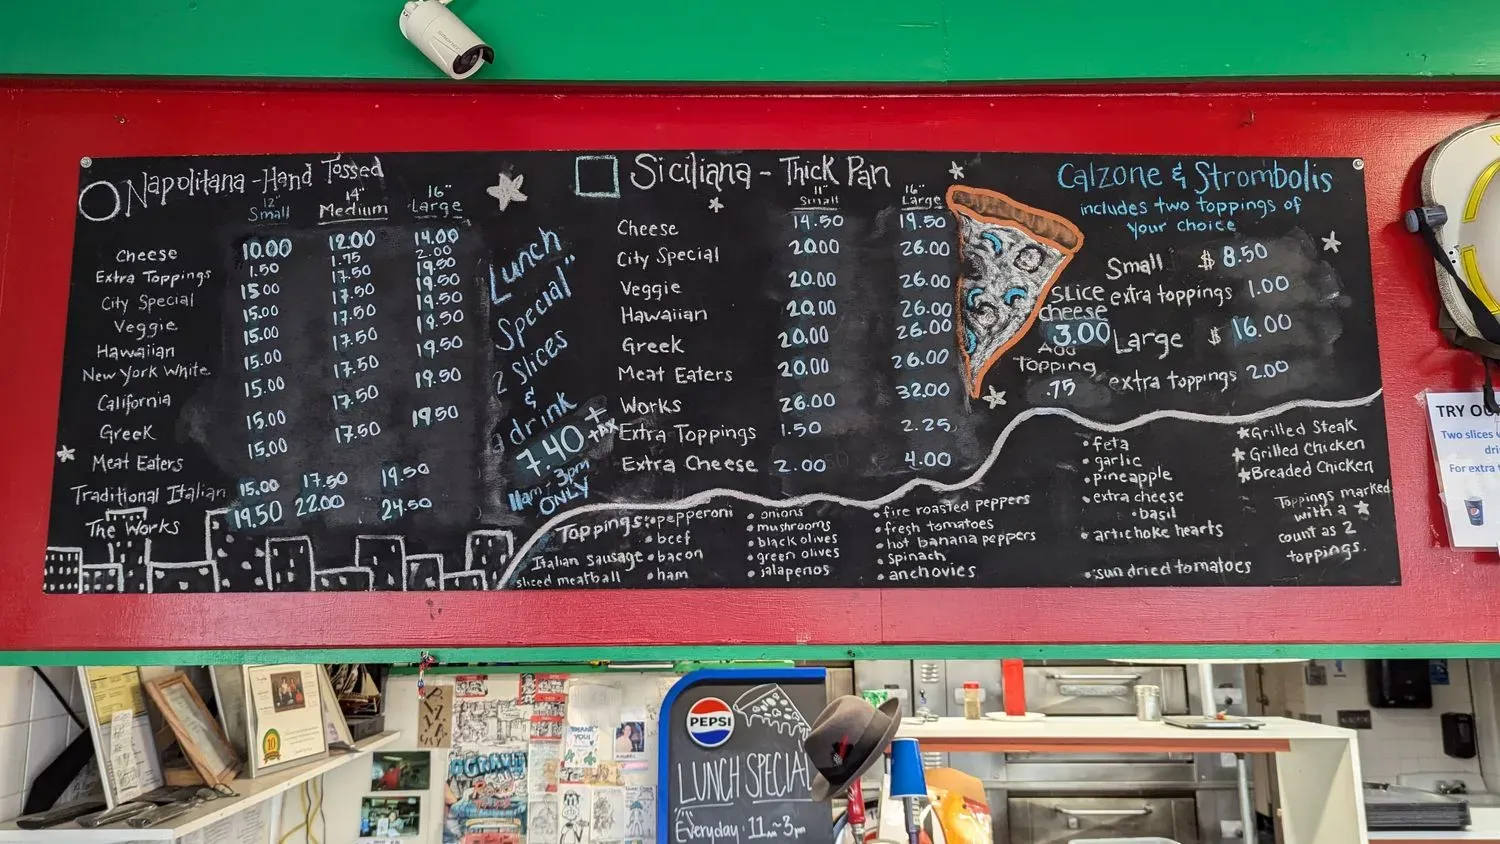 Napolitana - Hand Tossed
12" 14" 16"
Small Medium Large
Cheese 10.00 12.00 14.00
Extra Toppings 1.50 1.75 2.00
City Special 15.00 17.50 19.50
Veggie 15.00 17.50 19.50
Hawaiian 15.00 17.50 19.50
New York White 15.00 17.50 19.50
California 15.00 17.50 19.50
Greek 15.00 17.50 19.50
Meat Eaters 15.00 17.50 19.50
Traditional Italian 15.00 17.50 19.50
The Works 19.50 22.00 24.50
Lunch
Special"
2 Slices
&
a drink
7.40 + tax
11am - 3pm
ONLY
Siciliana - Thick Pan
11" 16"
Small Large
Cheese 14.50 19.50
City Special 20.00 26.00
Veggie 20.00 26.00
Hawaiian 20.00 26.00
Greek 20.00 26.00
Meat Eaters 20.00 26.00
Works 26.00 32.00
Extra Toppings 1.50 2.25
Extra Cheese 2.00 4.00
SLICE
cheese
3.00
Add
Topping
.75
Calzone & Strombolis
includes two toppings of
your choice
Small $ 8.50
extra toppings 1.00
Large $ 16.00
extra toppings 2.00
Toppings:
• pepperoni
• beef
Italian sausage • bacon
sliced meatball • ham
• onions
• mushrooms
• black olives
• green olives
• jalapenos
• fire roasted peppers
• fresh tomatoes
• hot banana peppers
• spinach
• anchovies
• feta
• garlic
• pineapple
• extra cheese
• basil
• artichoke hearts
• sun dried tomatoes
★ Grilled Steak
★ Grilled Chicken
★ Breaded Chicken
Toppings marked
with a ★
count as 2
toppings.
TRY OU
Two slices
dri
For extra t
PEPSI
LUNCH SPECIAL
Everyday 11am~3pm
THANK YOU
GRAVITY
10